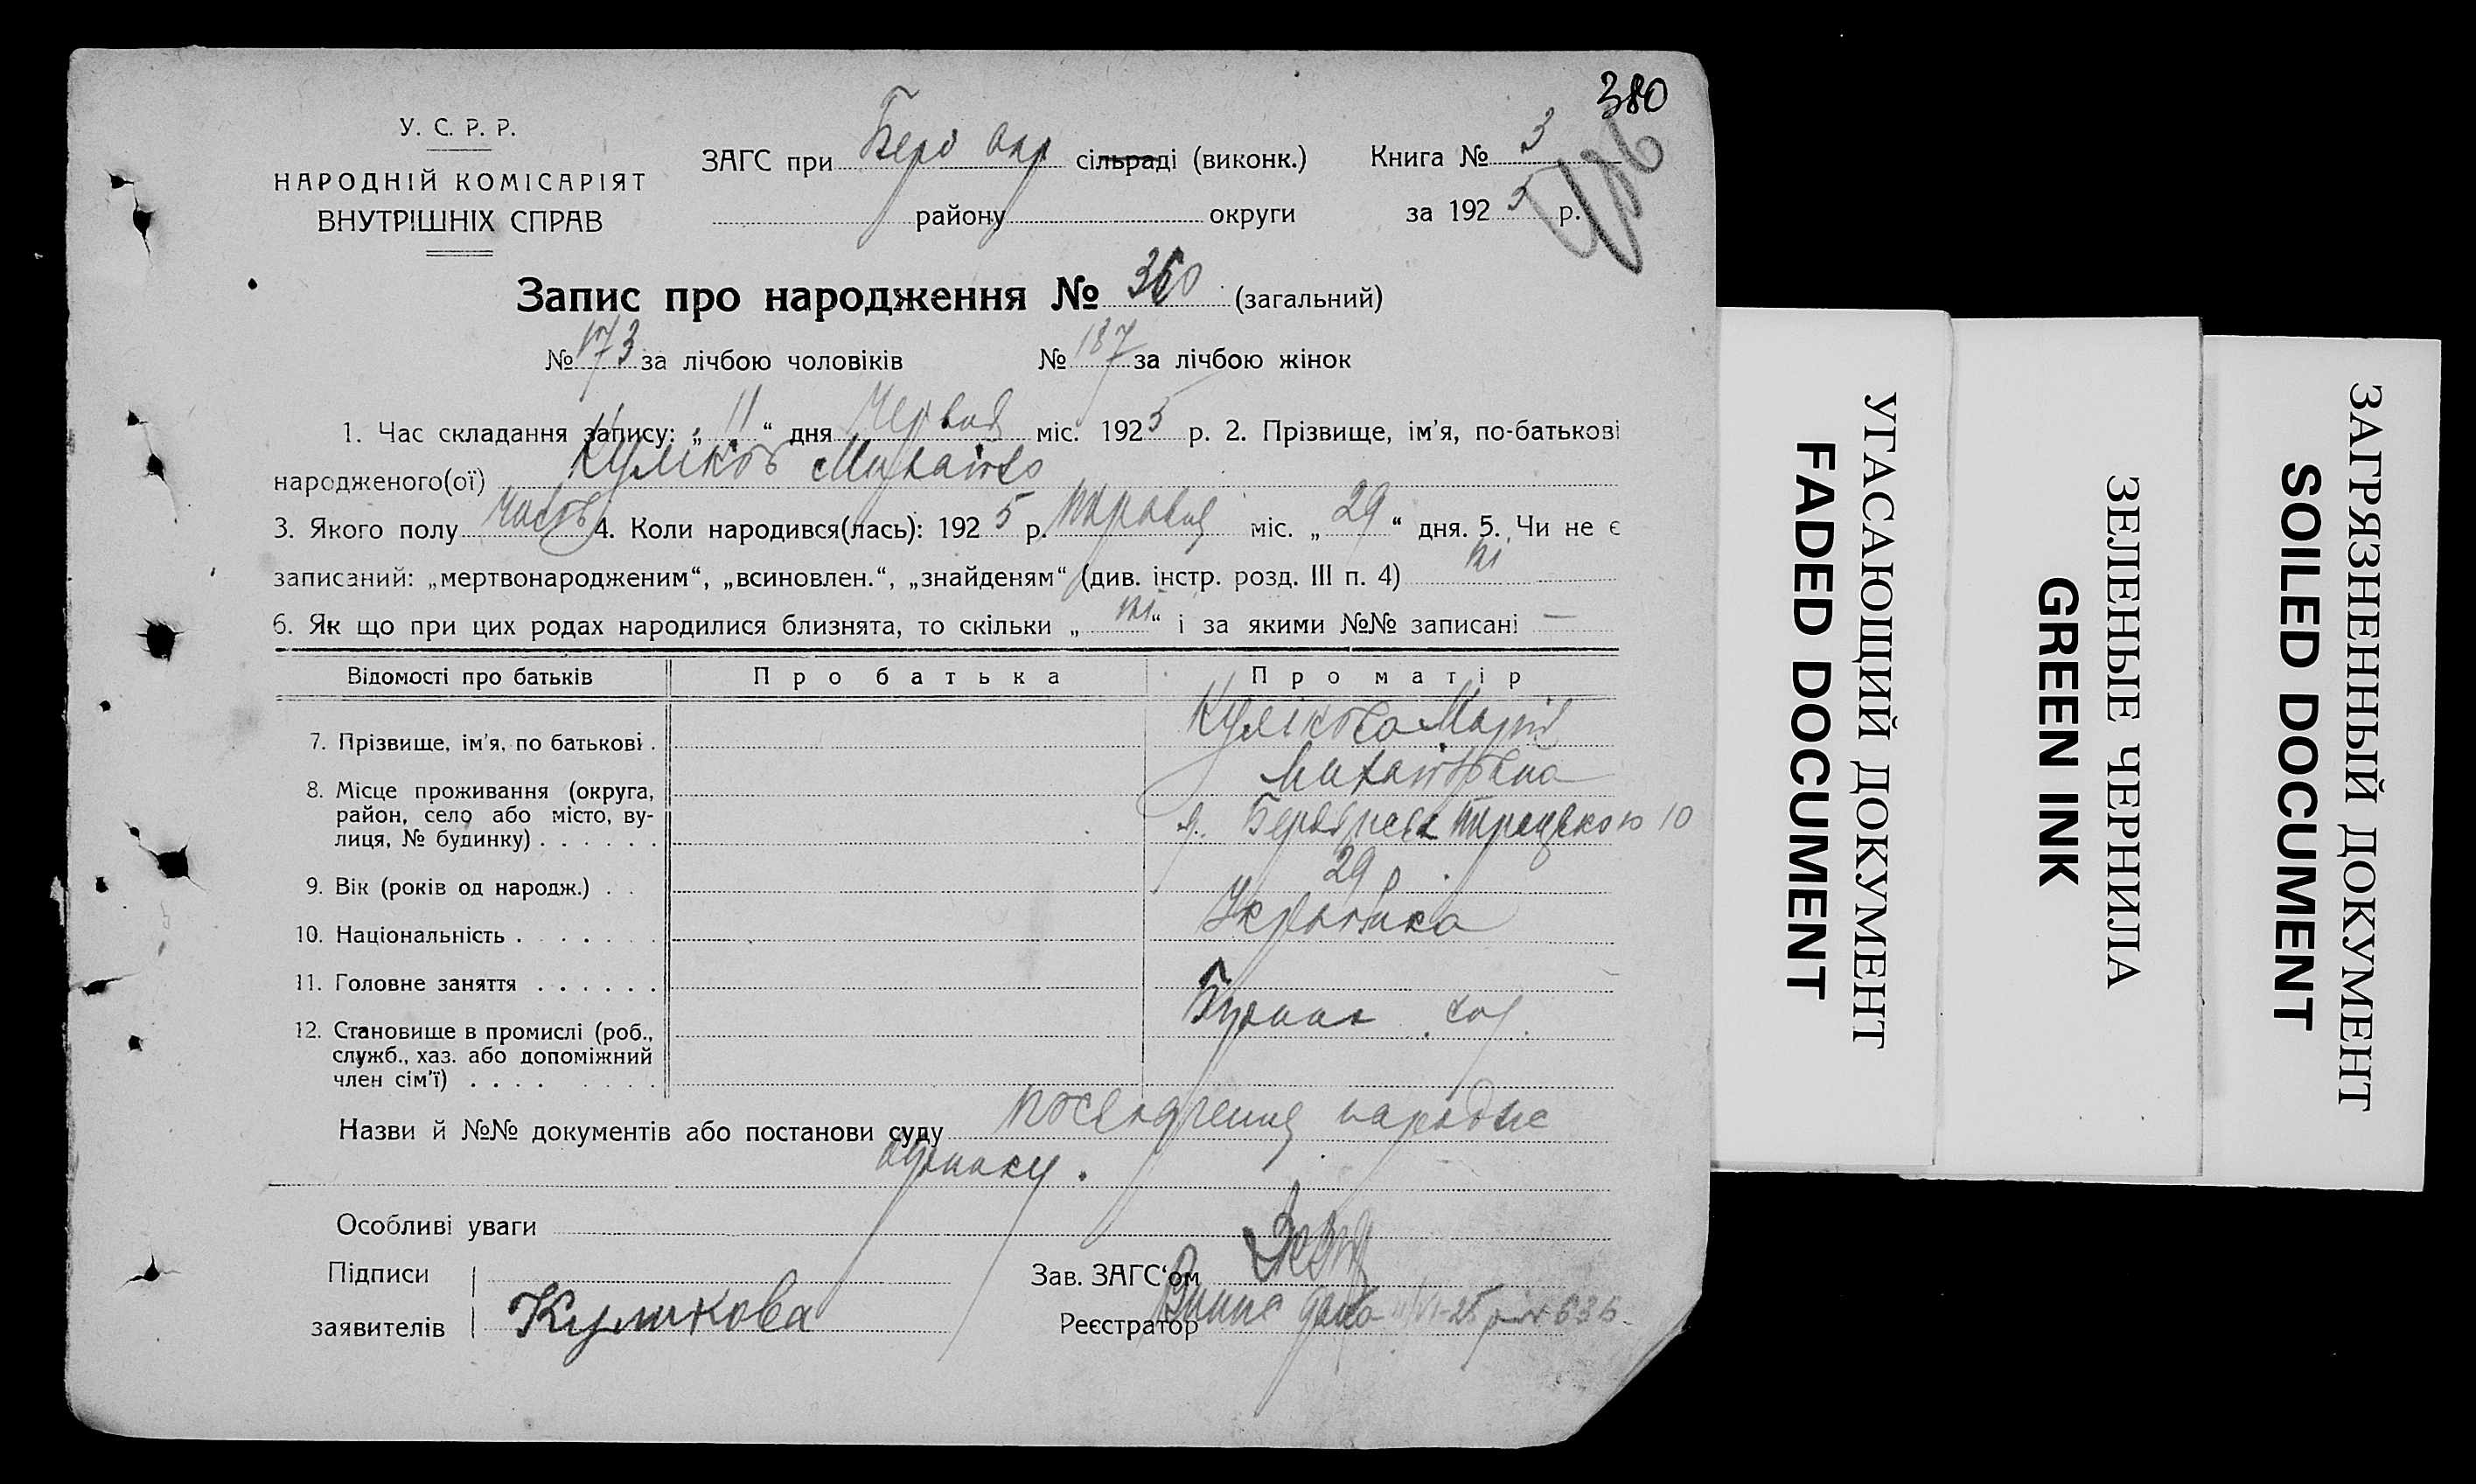 380
У. С. Р. Р.
НАРОДНІЙ КОМІСАРІЯТ
ВНУТРІШНІХ СПРАВ
ЗАГС при Берд Окр сільраді (виконк.) Книга № 3
району округи за 192 5 р.
Запис про народження № 360 (загальний)
№ 173 за лічбою чоловіків № 187 за лічбою жінок
1. Час складання запису: „ 11 “ дня Червня міс. 192 5 р. 2. Прізвище, ім’я, по-батькові
народженого(ої) Куліков Михайло
3. Якого полу 4. Коли народився(лась): 192 5 р. травня міс. „ 29 “ дня. 5. Чи не є
записаний: „мертвонародженим“, „всиновлен.“, „знайденям“ (див. інстр. розд. III п. 4) ні
6. Як що при цих родах народилися близнята, то скільки „ ні “ і за якими №№ записані —
Відомості про батьків Про батька Про матір
7. Прізвище, ім’я, по батькові . Кулікова Марія
Михайлівна
8. Місце проживання (округа,
район, село або місто, ву-
лиця, № будинку) . . . . . . Бердянськ 10
9. Вік (років од народж.) . . 29 р
10. Національність . . . . . . Українка
11. Головне заняття . . . . . .
12. Становище в промислі (роб.,
служб., хаз. або допоміжний
член сім’ї) . . . .
Назви й №№ документів або постанови суду посвідчення
будинку.
Особливі уваги
Підписи Зав. ЗАГС‘ом
заявителів Куликова Реєстратор
УГАСАЮЩИЙ ДОКУМЕНТ
FADED DOCUMENT
ЗЕЛЕНЫЕ ЧЕРНИЛА
GREEN INK
ЗАГРЯЗНЕННЫЙ ДОКУМЕНТ
SOILED DOCUMENT